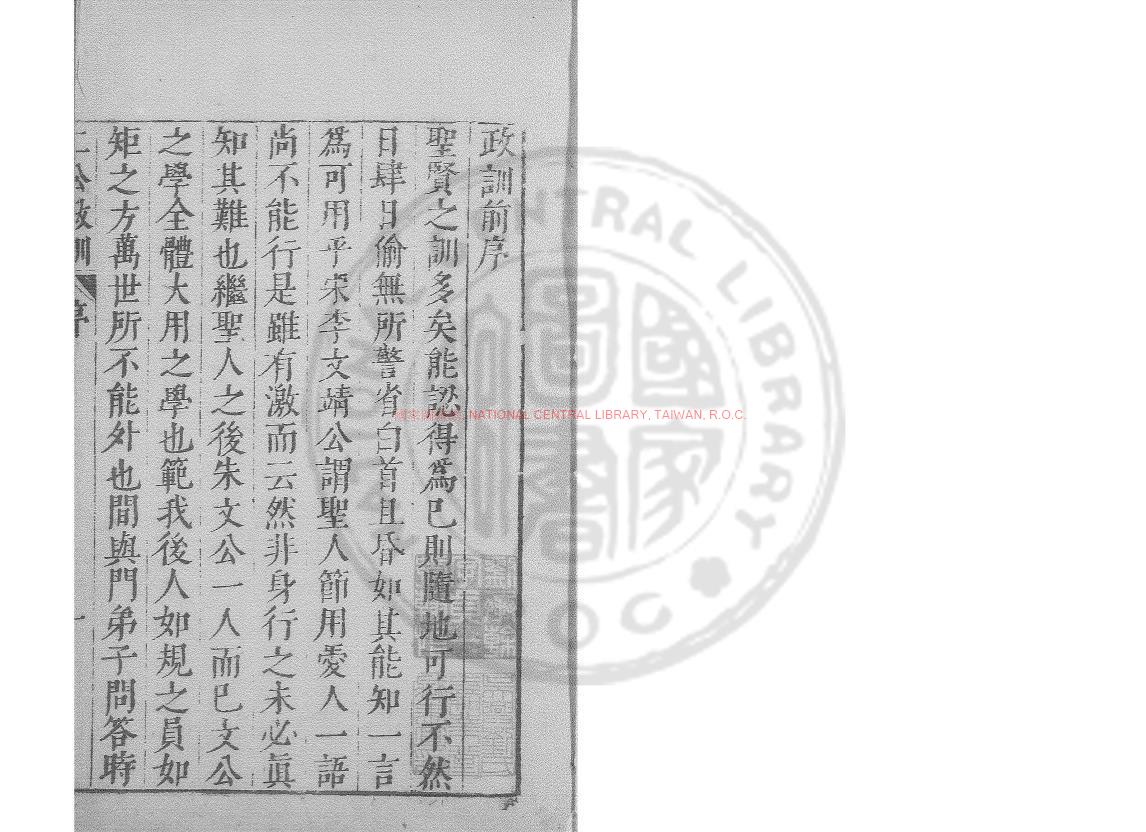 政訓前序
聖賢之訓多矣能認得為已則隨地可行不然
日肆日偷無所警省白首且昏如其能知一言
為可用乎宋李文靖公謂聖人節用愛人一語
尚不能行是雖有激而云然非身行之未必真
知其難也繼聖人之後朱文公一人而已文公
之學全體大用之學也範我後人如規之員如
矩之方萬世所不能外也間與門弟子問答時
公政訓 序 一
NATIONAL CENTRAL LIBRARY, TAIWAN, R.O.C.
CENTRAL LIBRARY